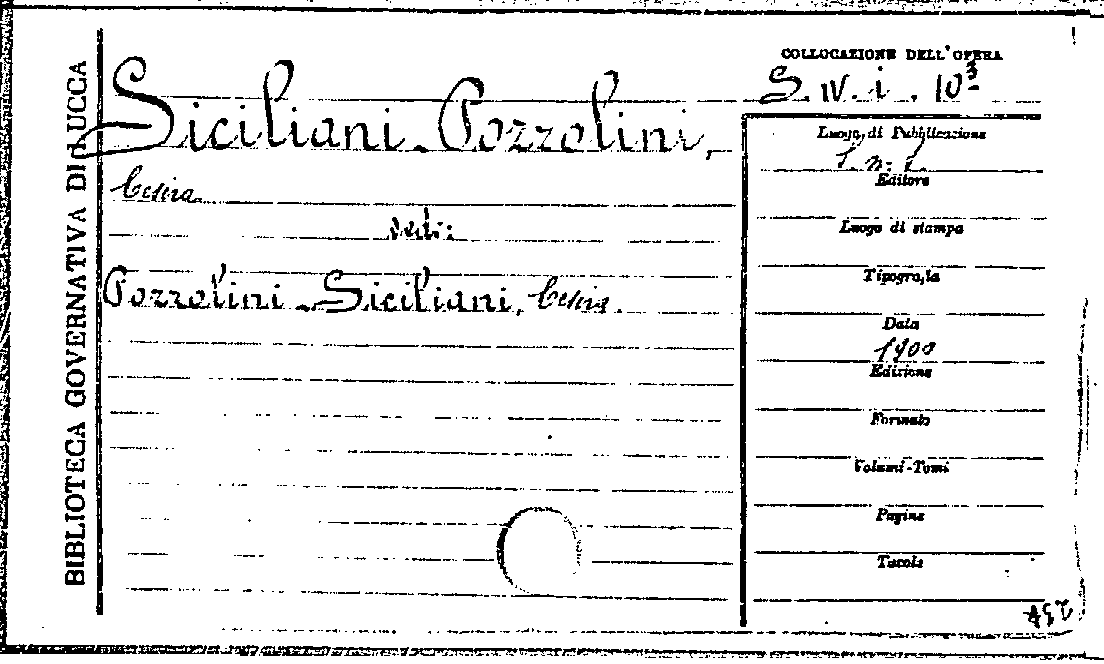 BIBLIOTECA GOVERNATIVA DI LUCCA
COLLOCAZIONE DELL'OPERA
S. IV. i. 10³
Siciliani-Pozzolini,
Cesira
vedi:
Pozzolini-Siciliani, Cesira.
Luogo di Pubblicazione
S. n. t.
Editore
Luogo di stampa
Tipografia
Data
1900
Edizione
Formato
Volumi-Tomi
Pagine
Tavole